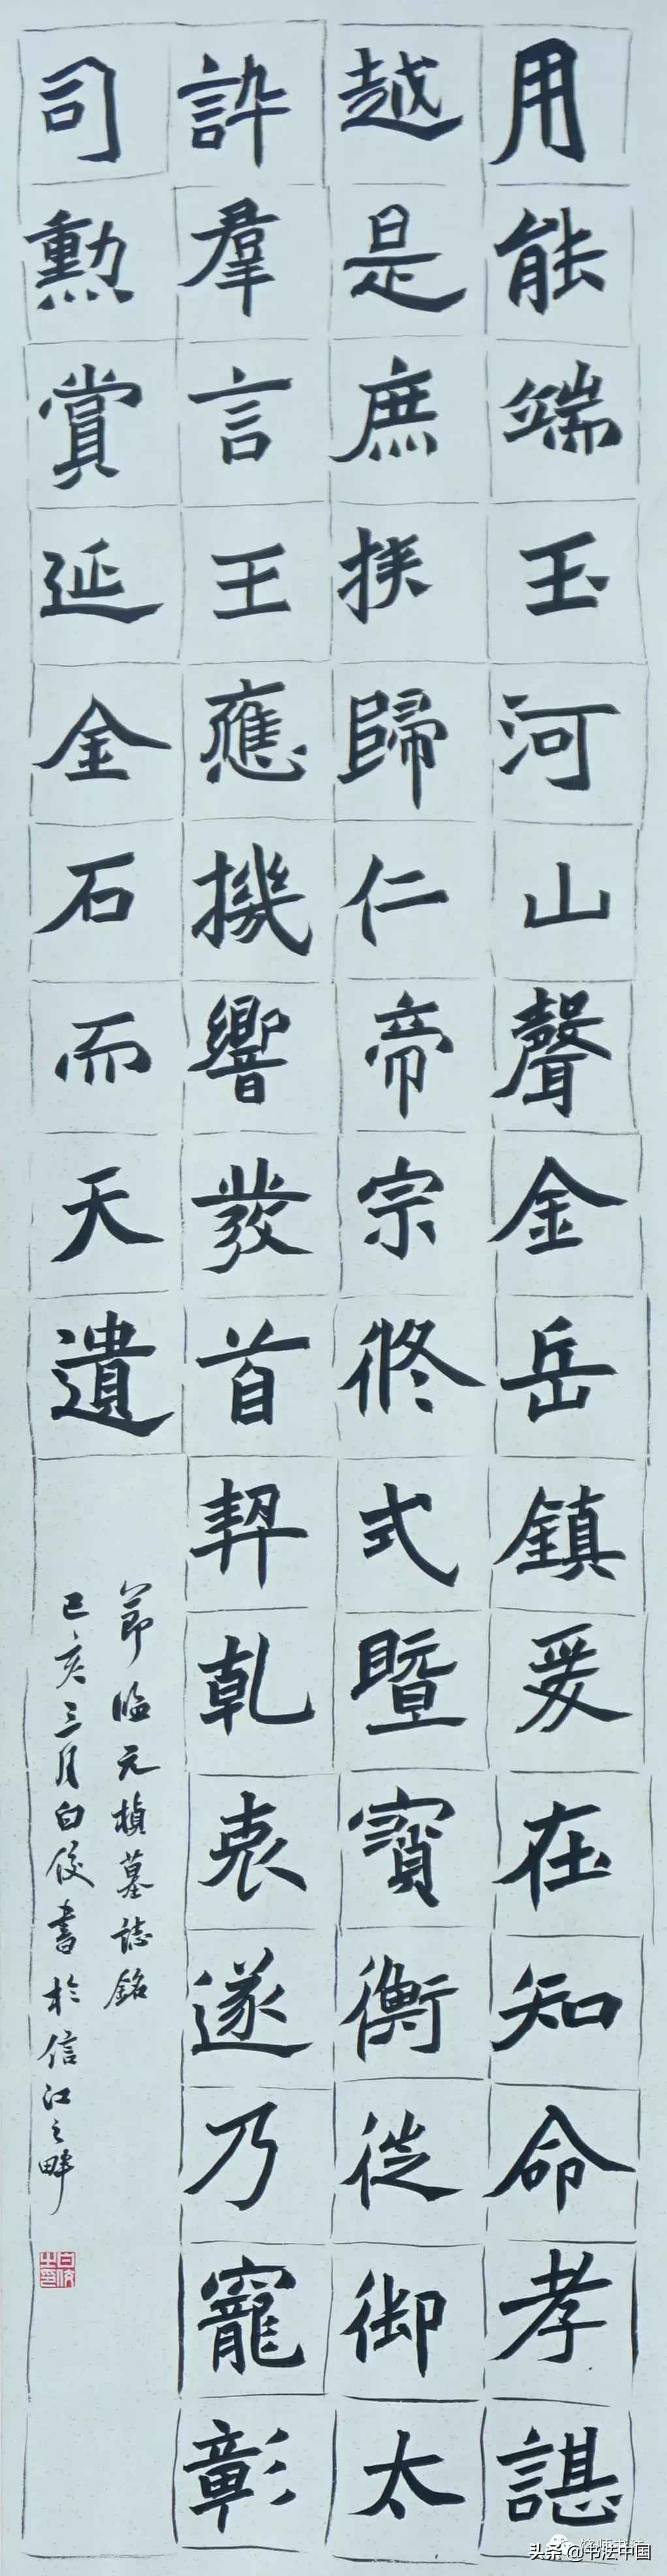 用能端玉河山聲金岳鎮爰在知命孝諶
越是庶揆歸仁帝宗攸式暨寳衡徙御太
訩羣言王應機響發首契乹衷遂乃寵彰
司勳賞延金石而天遺
節臨元楨墓誌銘
己亥三月白俊書於信江之畔
白俊之印
头条@书法中国